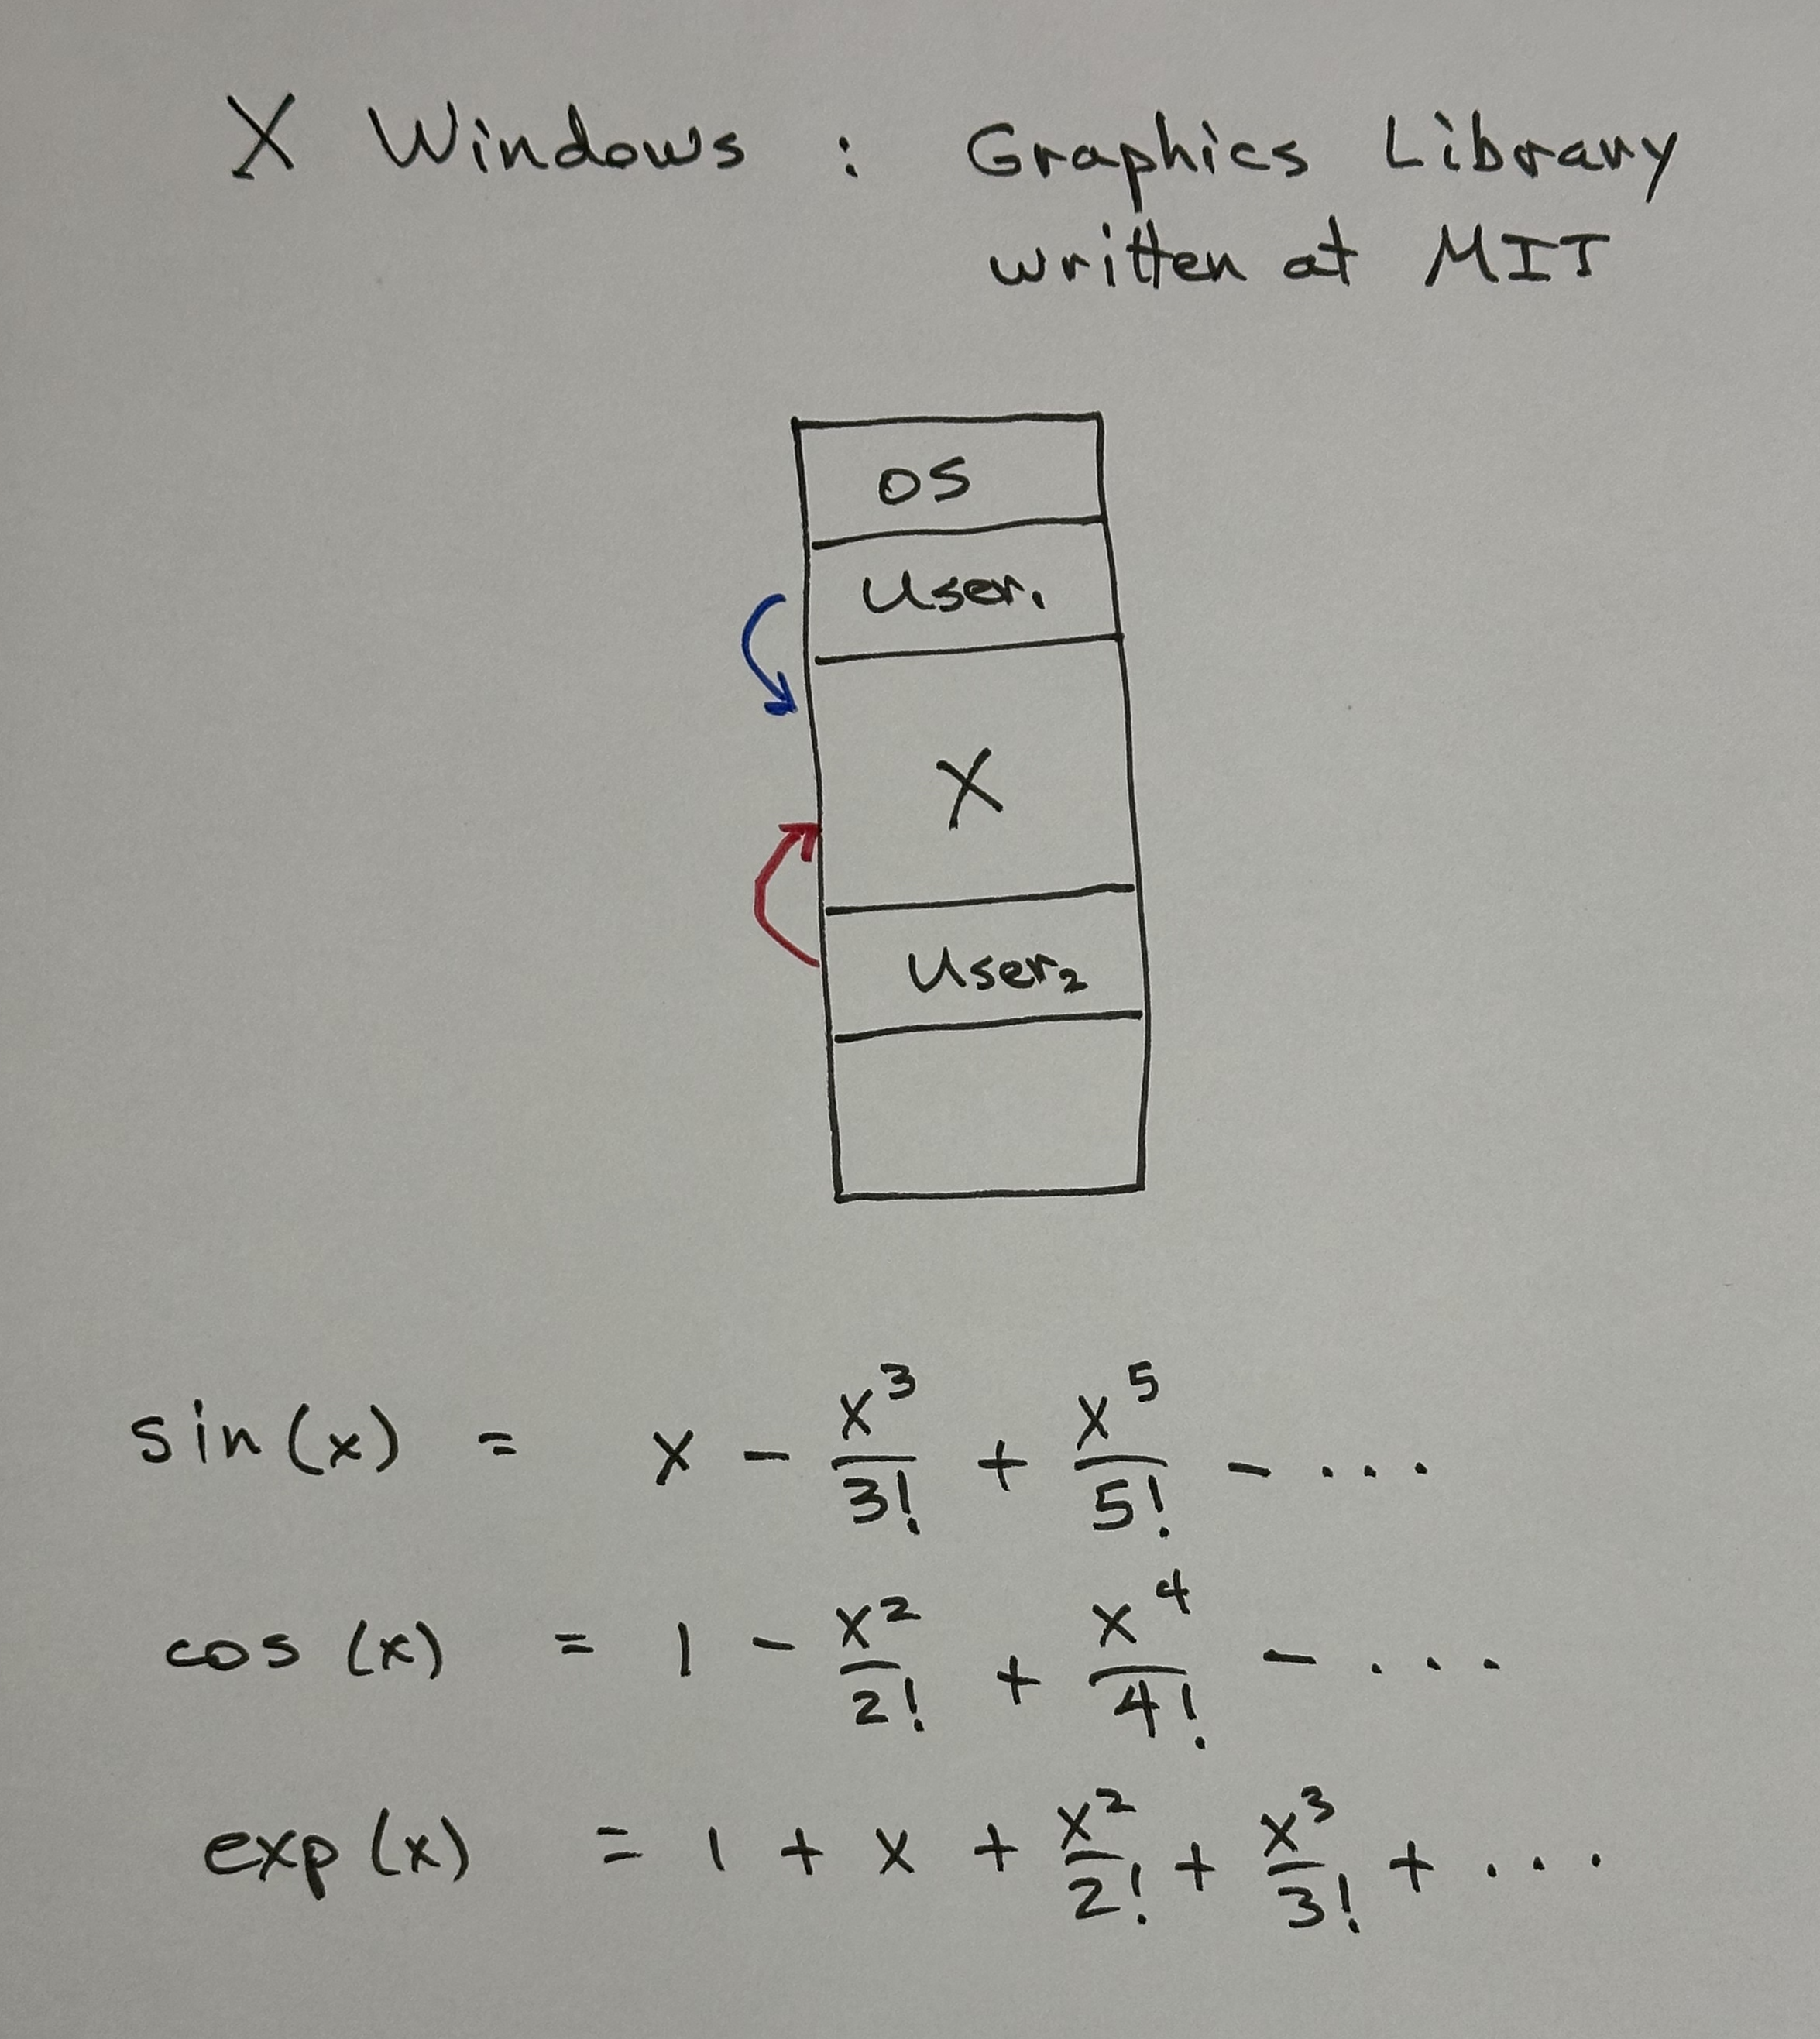 X Windows : Graphics Library
written at MIT
OS
User₁
X
User₂
sin(x) = x - x³/3! + x⁵/5! - ...
cos(x) = 1 - x²/2! + x⁴/4! - ...
exp(x) = 1 + x + x²/2! + x³/3! + ...